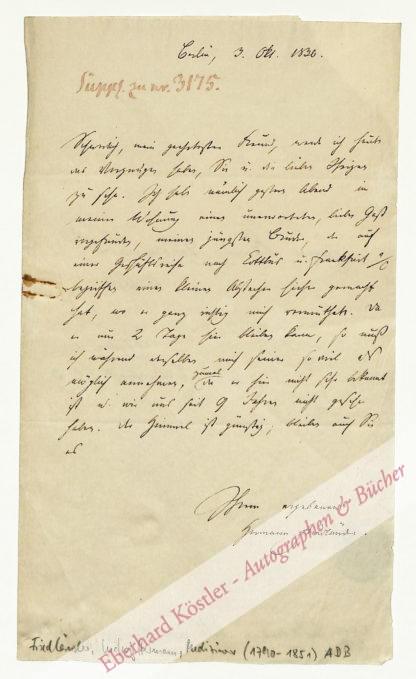 Berlin, 3. Okt. 1836.
Suppl. zu nr. 3175.
Schwerlich, mein geehrtester Freund, werde ich heute
das Vergnügen haben, Sie u. die lieben Ihrigen
zu sehn. Ich habe nämlich gestern Abend in
meiner Wohnung einen unerwarteten, lieben Gast
vorgefunden, meinen jüngsten Bruder, der auf
einer Geschäftsreise nach Cottbus u. Frankfurt a/O
begriffen einen kleinen Abstecher hieher gemacht
hat, wo er ganz richtig mich vermuthete. Da
er nur 2 Tage hier bleiben kann, so muß
ich während derselben mich seiner so viel als
möglich annehmen, zumal da er hier nicht sehr bekannt
ist u. wir uns seit 9 Jahren nicht gesehn
haben. Der Himmel ist günstig; bleiben auch Sie
es
Ihrem ergebenen
Hermann Friedländer.
Friedländer, Ludwig Hermann, Mediziner (1790-1851) ADB
Eberhard Köstler - Autographen & Bücher